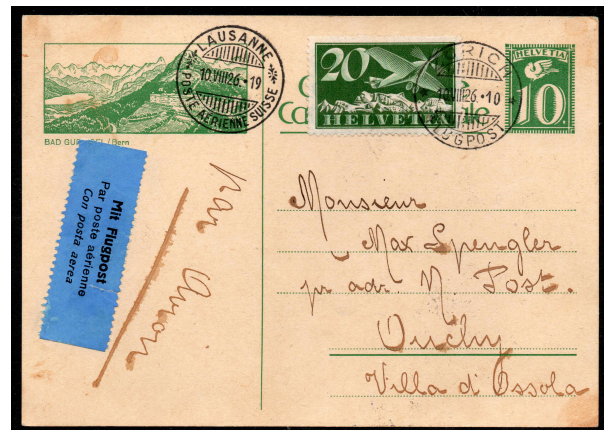 LAUSANNE
10.VIII.26.-19
POSTE AÉRIENNE SUISSE
20
HELVETIA
10.VIII.26.-10
FLUGPOST
HELVETIA
10
BAD GURNIGEL / Bern
Mit Flugpost
Par poste aérienne
Con posta aerea
par Avion
Monsieur
Max Spengler
pr adr. M. Post.
Ouchy
Villa d'Ossola